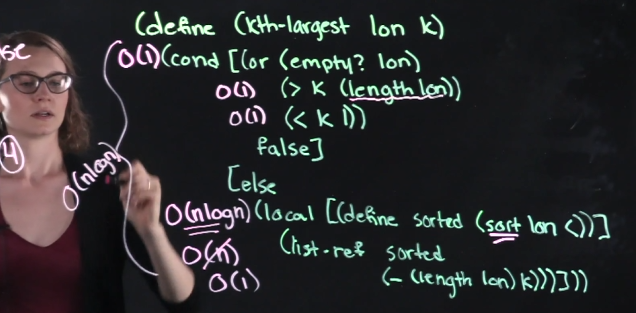 (define (kth-largest lon k)
se
O(1) (cond [(or (empty? lon)
O(1) (> k (length lon))
O(1) (< k 1))
4
false]
O(nlogn)
[else
O(nlogn) (local [(define sorted (sort lon <))]
O(n) (list-ref sorted
O(1) (- (length lon) k)))]))